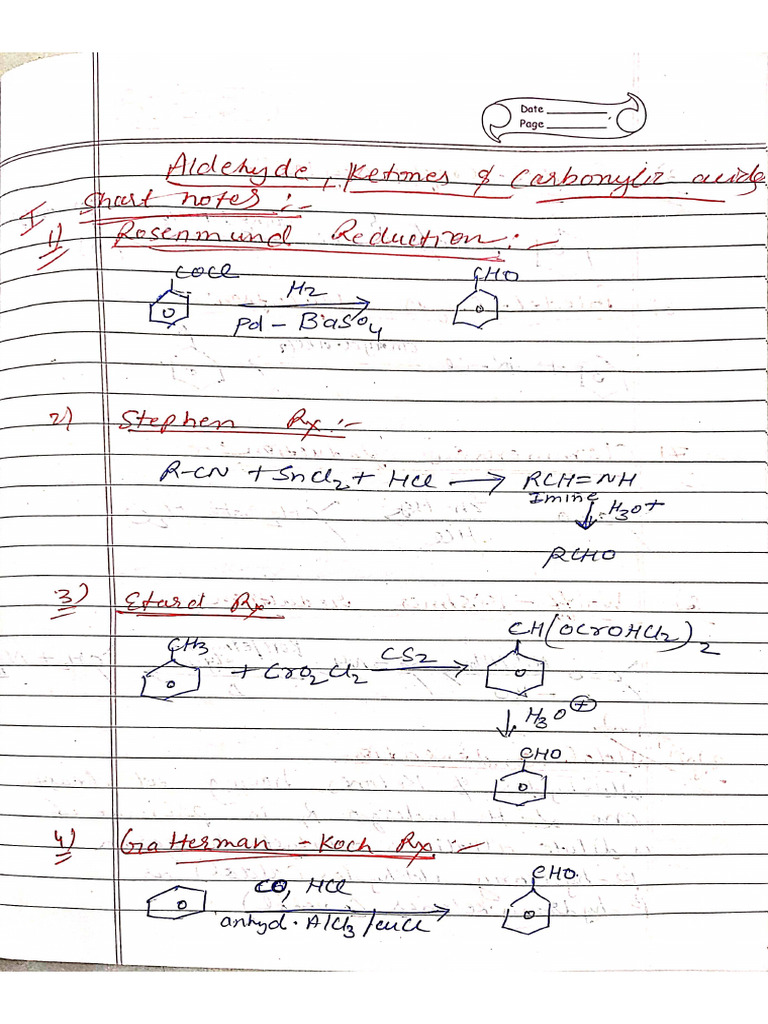 Date
Page
Aldehyde, Ketones & Carbonylic acids
Short notes :-
I
1) Rosenmund Reduction :-
COCl
H2
CHO
Pd - BaSO4
2) Stephen Rx :-
R-CN + SnCl2 + HCl → RCH=NH
Imine
H3O+
RCHO
3) Etard Rx
CH(OCrOHCl2)2
CH3
+ CrO2Cl2
CS2
H3O+
CHO
4) Gatterman - Koch Rx :-
CHO
CO, HCl
anhyd. AlCl3/CuCl